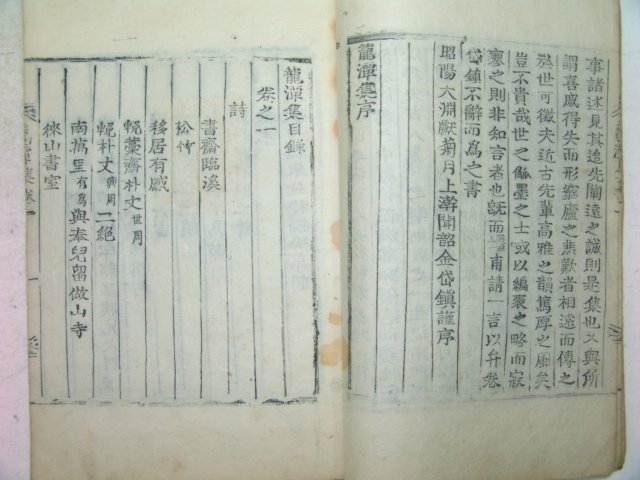 事諸述見其追先闡遠之誠則是集也又與所
謂喜戚得失而形窮廬之悲歎者相遠而傳之
於世可徵夫近古先輩高雅之韻篤厚之風矣
豈不貴哉世之觚墨之士或以編袠之略而寂
寥之則非知言者也旣而 甫請一言以弁卷
岱鎭不辭而爲之書
昭陽大淵獻菊月上澣聞韶金岱鎭謹序
龍潭集序
龍潭集目錄
卷之一
詩
書齋臨溪
松竹
移居有感
輓藁齋朴丈世月
輓朴丈興周二絕
南萬里有爲與奉兒留做山寺
倈山書室